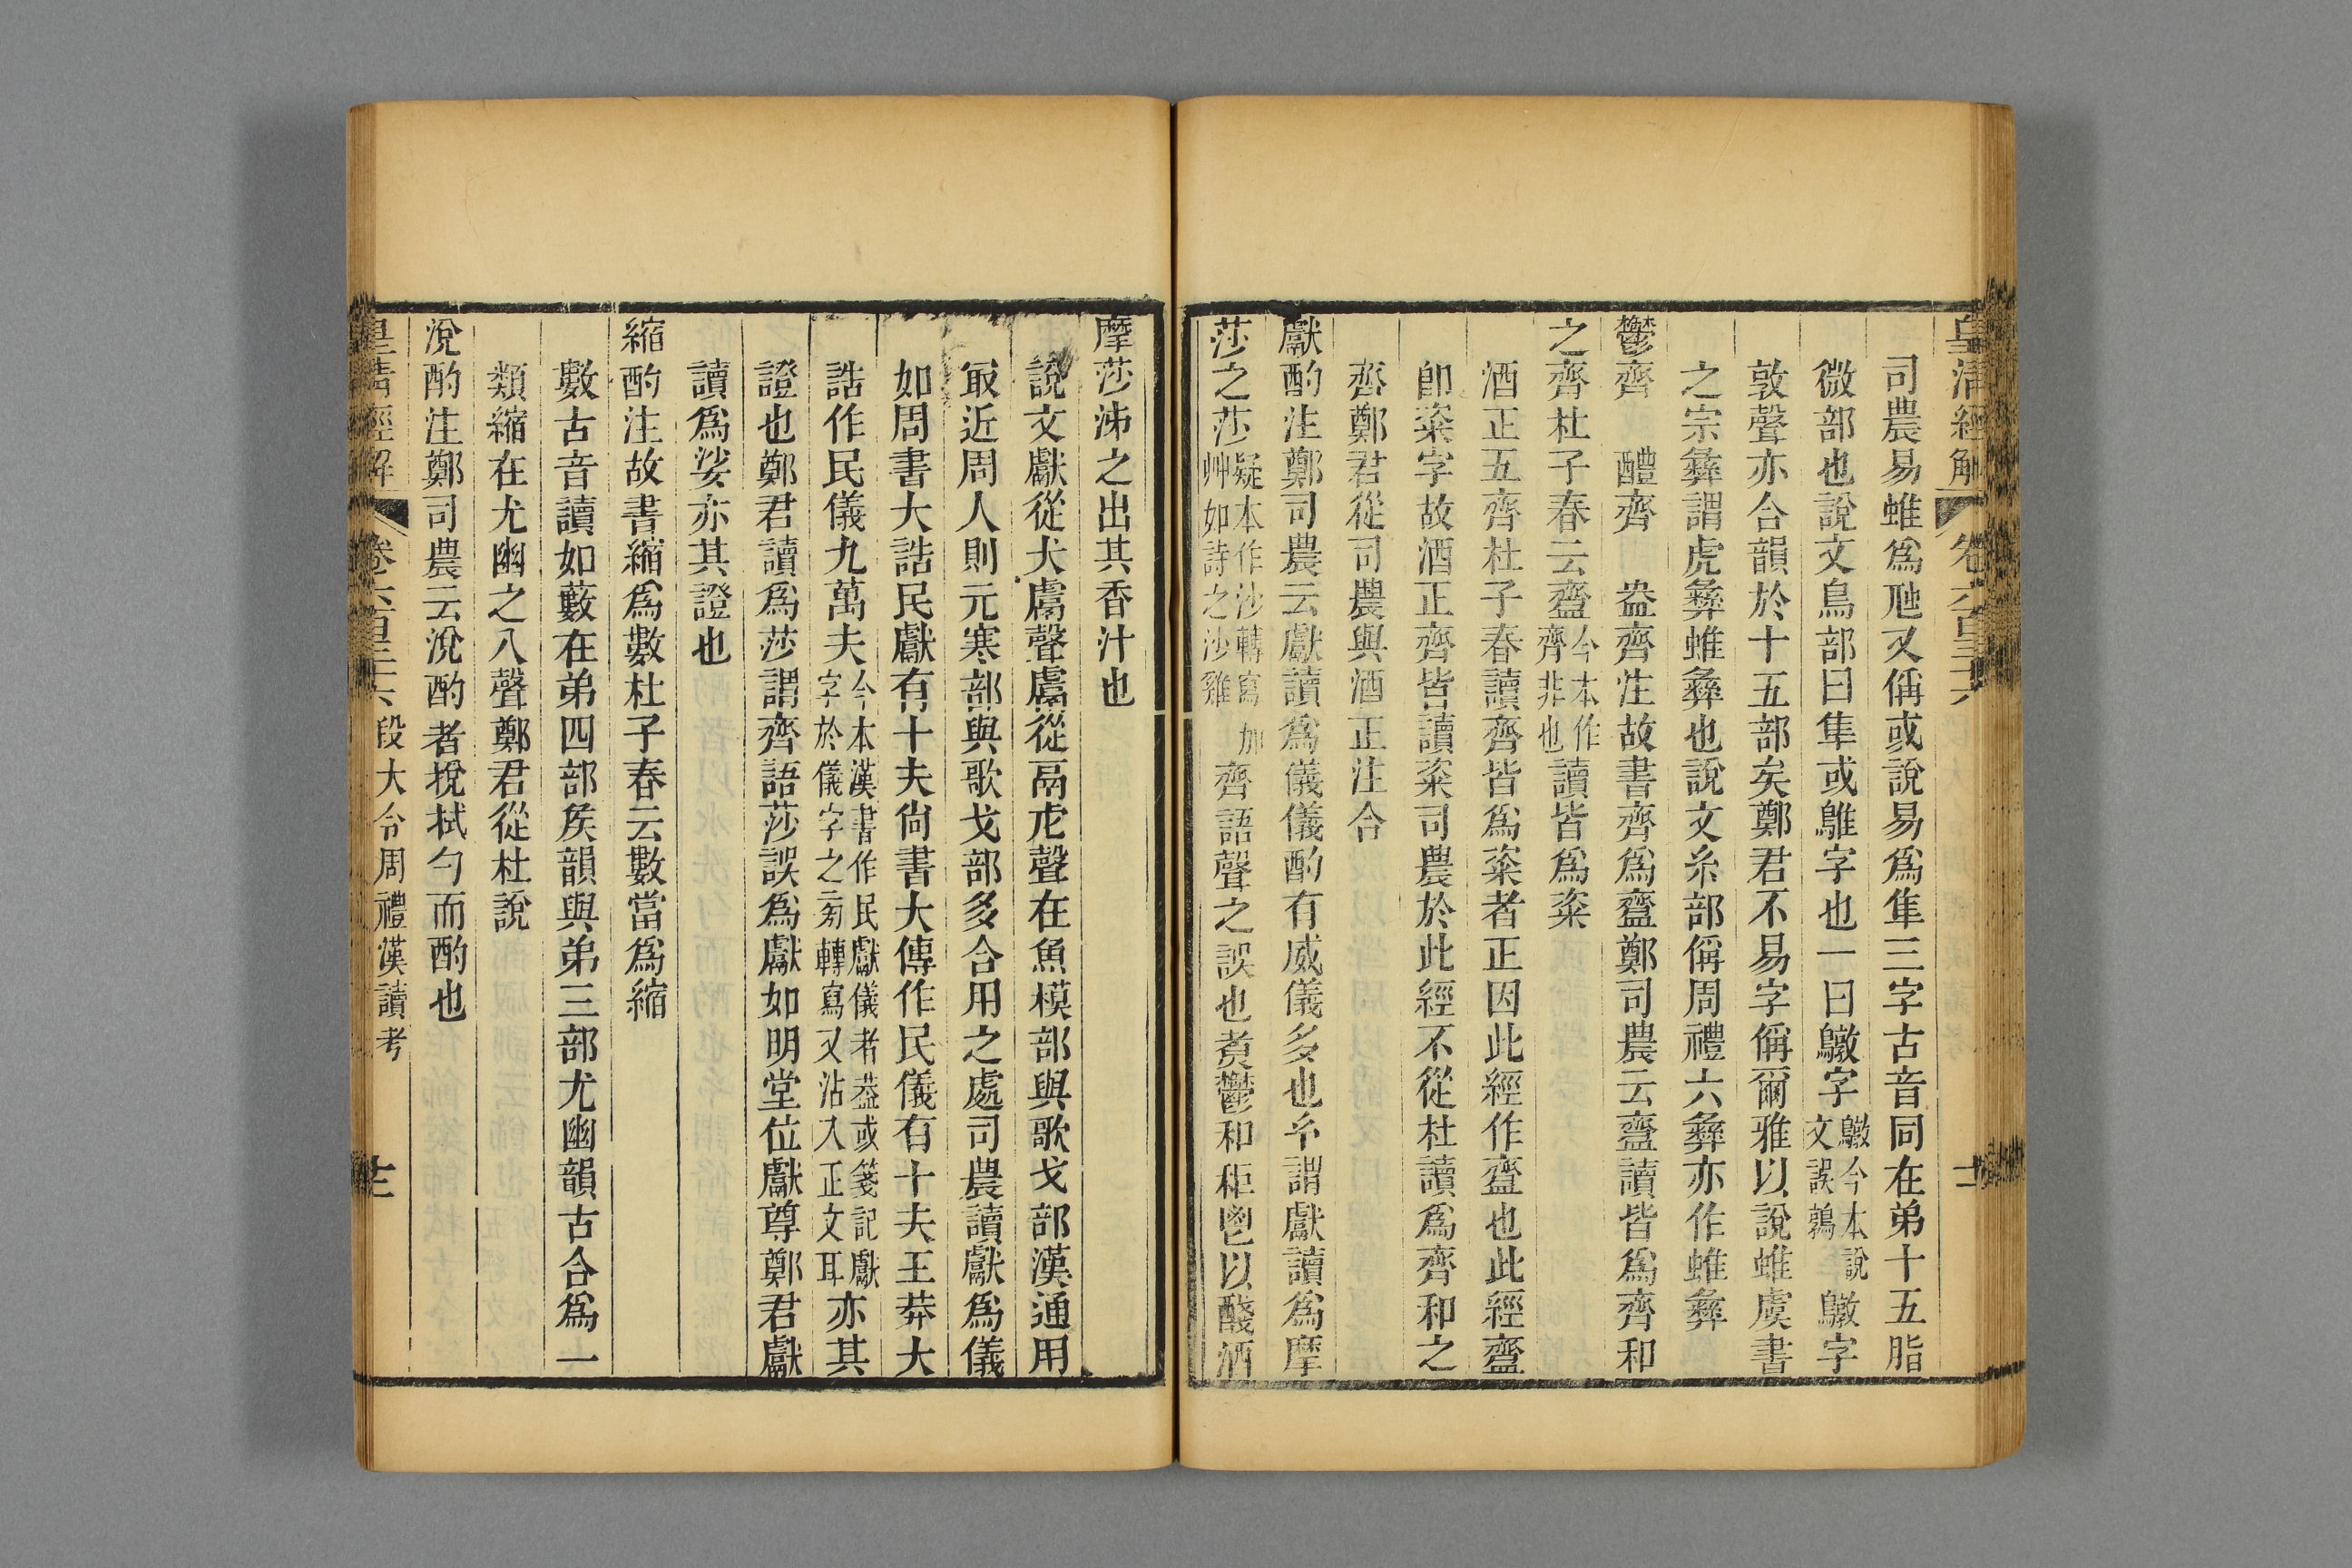 皇清經解 卷六百三十六
司農易蜼爲虺又偁或說易爲隼三字古音同在弟十五脂
微部也說文鳥部曰隼或鵻字也一曰鷻字鷻今本說文誤鶉鷻字
敦聲亦合韻於十五部矣鄭君不易字偁爾雅以說蜼虞書
之宗彝謂虎彝蜼彝也說文糸部偁周禮六彝亦作蜼彝
鬱齊 醴齊 盎齊注故書齊爲齍鄭司農云齍讀皆爲齊和
之齊杜子春云齍今本作齊非也讀皆爲粢
酒正五齊杜子春讀齊皆爲粢者正因此經作齍也此經齍
卽粢字故酒正齊皆讀粢司農於此經不從杜讀爲齊和之
齊鄭君從司農與酒正注合
獻酌注鄭司農云獻讀爲儀儀酌有威儀多也今謂獻讀爲摩
莎之莎疑本作沙轉寫加艸如詩之沙雞齊語聲之誤也煑鬱和秬鬯以醆酒
摩莎泲之出其香汁也
說文獻從犬鬳聲鬳從鬲虍聲在魚模部與歌戈部漢通用
㝡近周人則元寒部與歌戈部多合用之處司農讀獻爲儀
如周書大誥民獻有十夫尙書大傳作民儀有十夫王莽大
誥作民儀九萬夫今本漢書作民獻儀者葢或箋記獻字於儀字之㫄轉寫又沾入正文耳亦其
證也鄭君讀爲莎謂齊語莎誤爲獻如明堂位獻尊鄭君獻
讀爲娑亦其證也
縮酌注故書縮爲數杜子春云數當爲縮
數古音讀如藪在弟四部矦韻與弟三部尤幽韻古合爲一
類縮在尤幽之入聲鄭君從杜說
涗酌注鄭司農云涗酌者捝拭勺而酌也
皇清經解 卷六百三十六 段大令周禮漢讀考